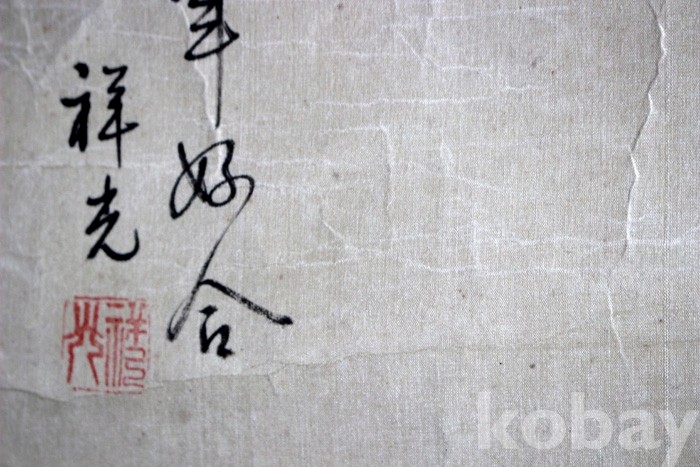 年好合
祥光
祥光
kobay